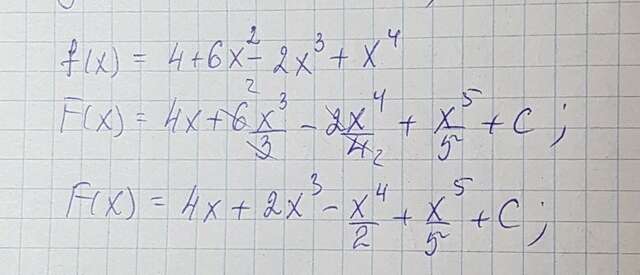 f(x) = 4+6x² - 2x³ + x⁴
F(x) = 4x + 6x³/3 2 - 2x⁴/4 2 + x⁵/5 + C ;
F(x) = 4x + 2x³ - x⁴/2 + x⁵/5 + C ;